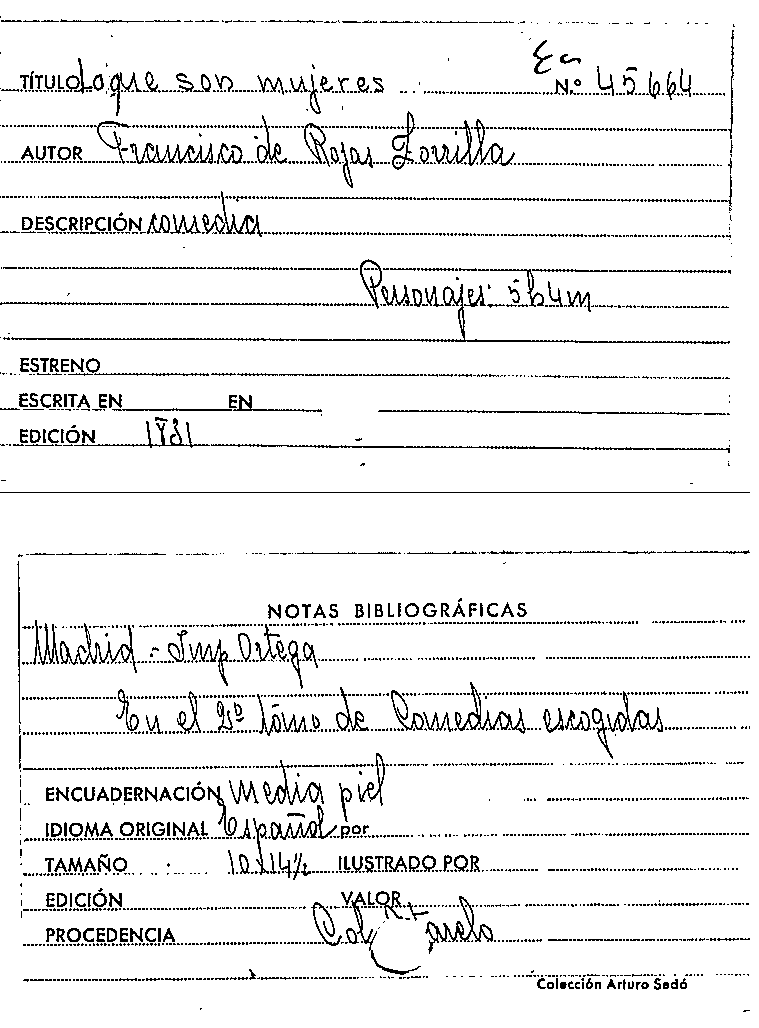 TÍTULO Lo que son mujeres Nº 45664
AUTOR Francisco de Rojas Zorrilla
DESCRIPCIÓN comedia
Personajes: 5h4m
ESTRENO
ESCRITA EN EN
EDICIÓN 1831
NOTAS BIBLIOGRÁFICAS
Madrid - Imp Ortega
En el 2º tomo de Comedias escogidas
ENCUADERNACIÓN media piel
IDIOMA ORIGINAL Español por
TAMAÑO 10x14½ ILUSTRADO POR
EDICIÓN VALOR
PROCEDENCIA Col
Colección Arturo Sedó